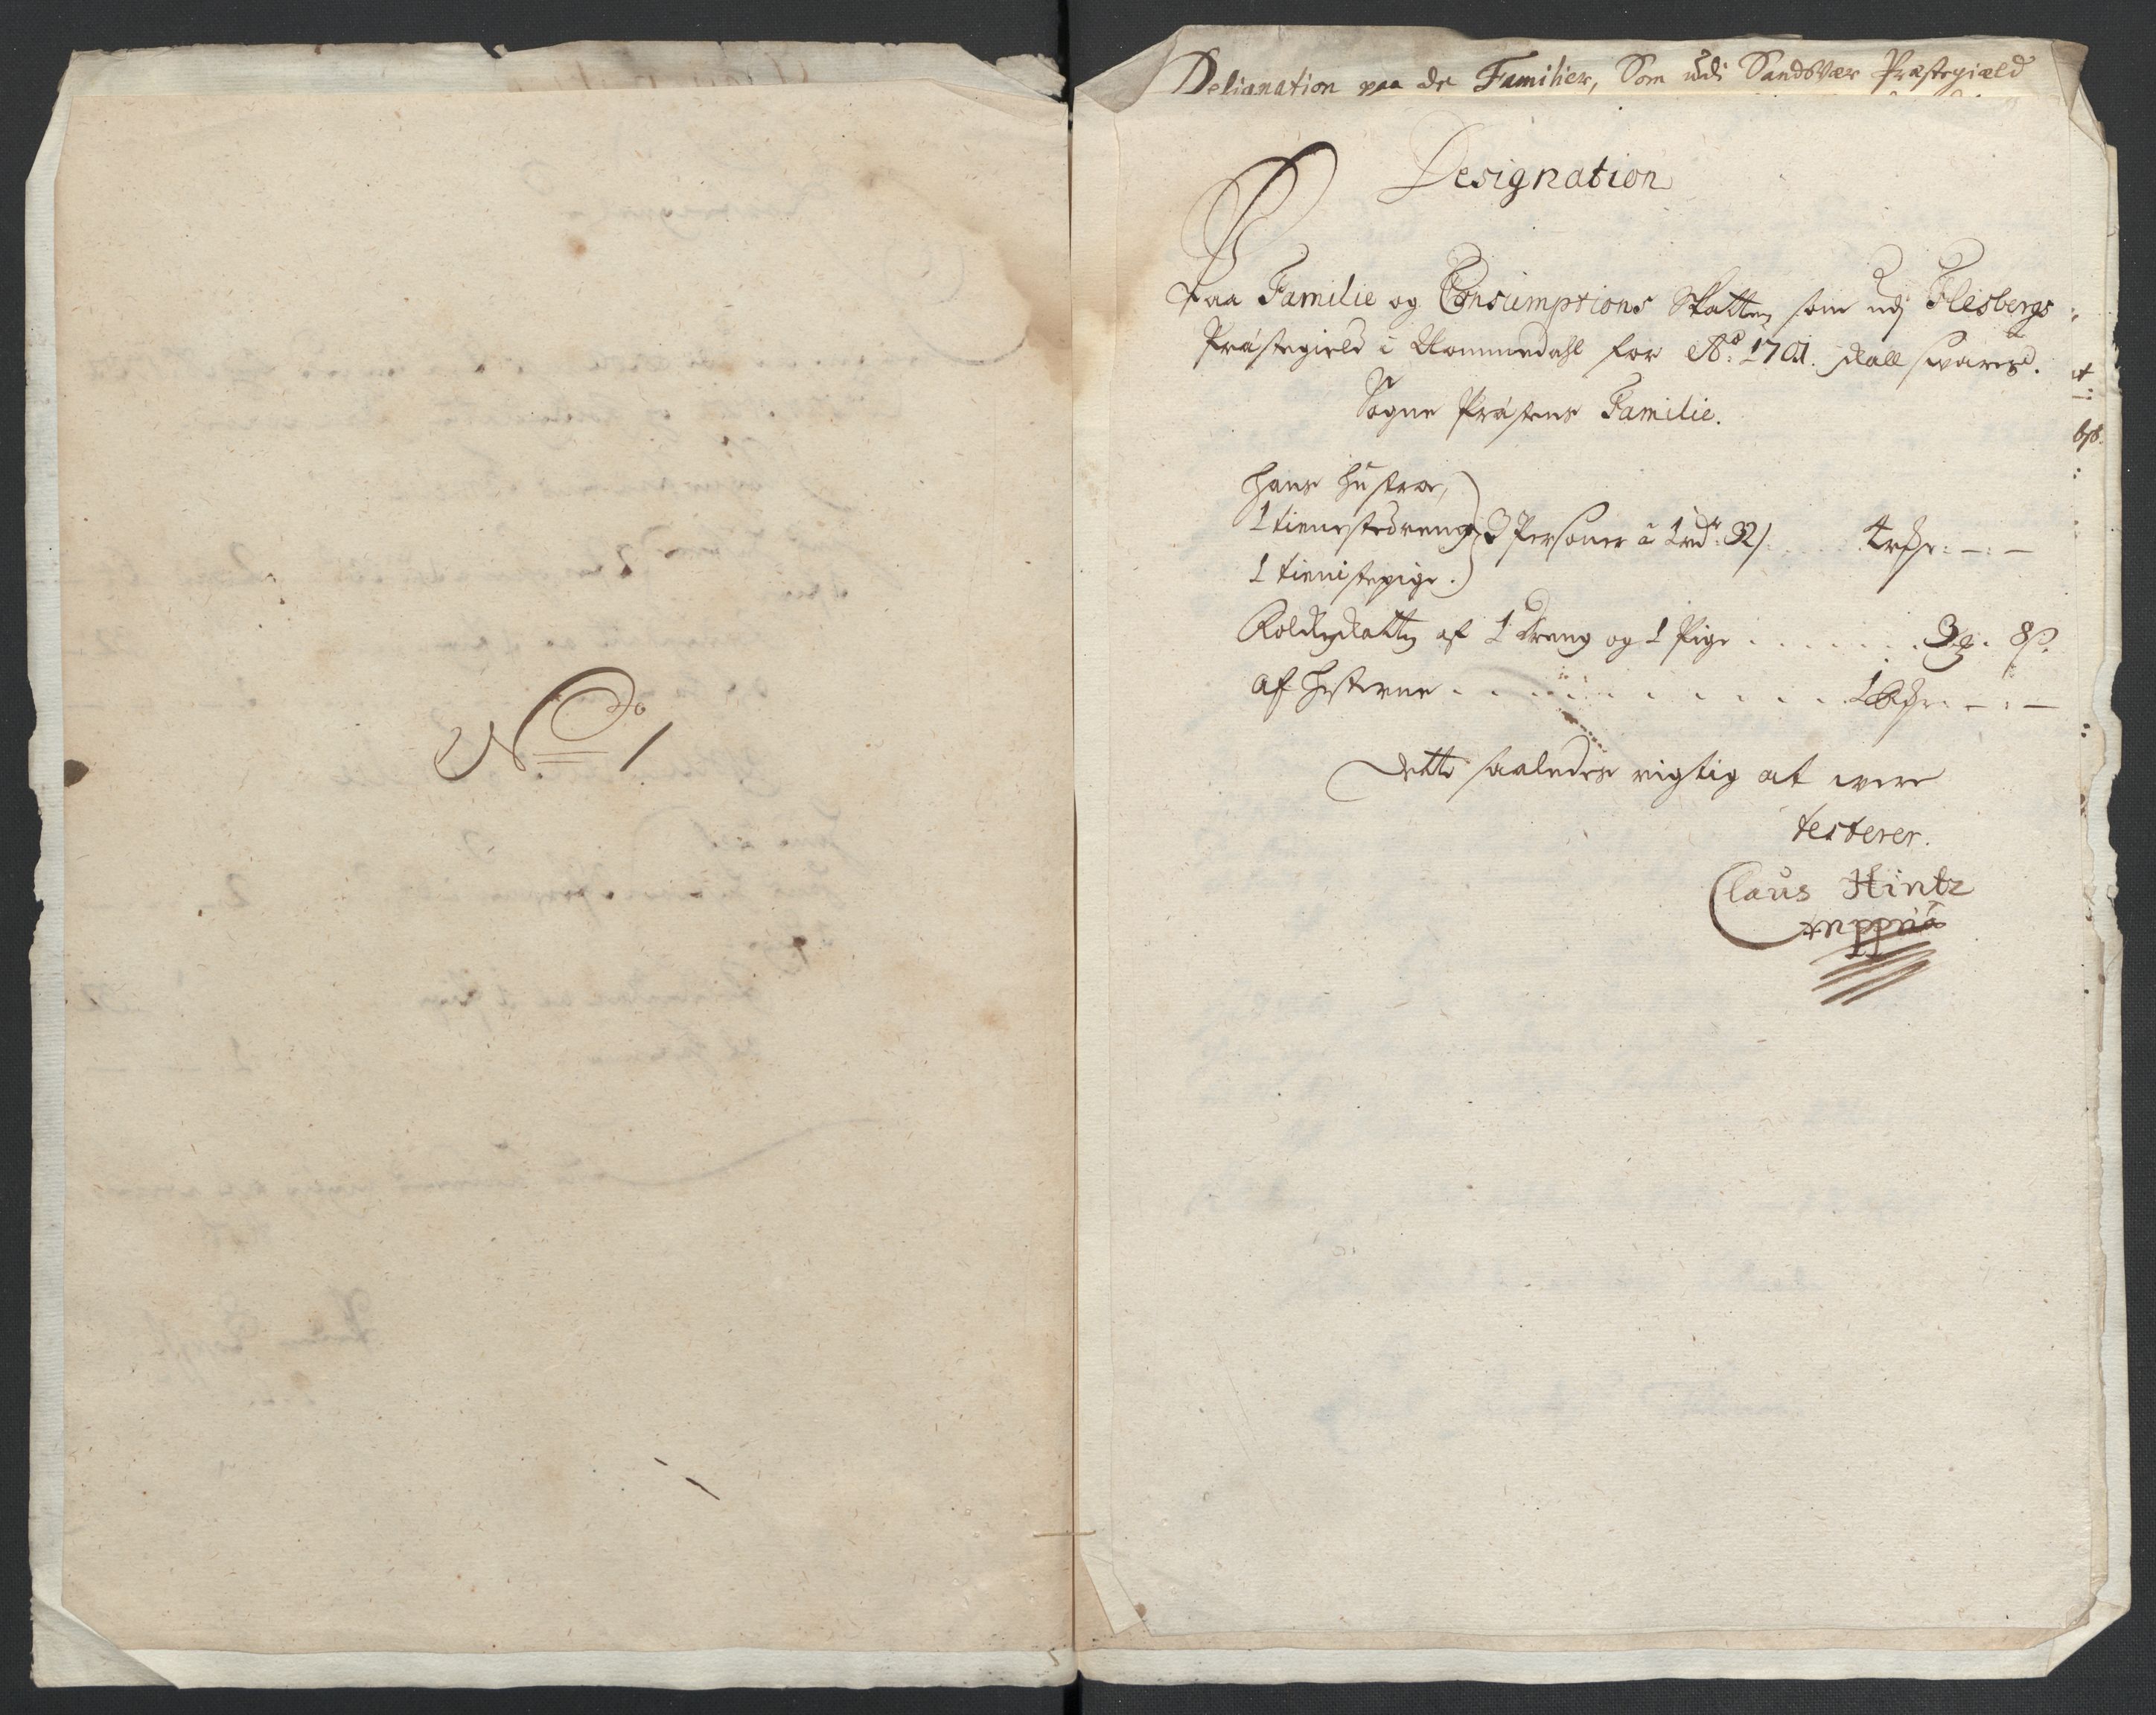 No 1
Designation paa de Familier, Som udi Sandsvær Præstegiæld
Designation
Paa Familie og Consumptions Skatten som udj Flesbergs
Præstegield i Nommedahl for Ao: 1701. skall svares.
Sogne Præstens Familie.
Hans Hustrue,
1 tienestedreng, 3 Personer a 1 rdr: 32 / . . . 4 rdr: – : –
1 tienistepige.
Folkeskatten af 1 Dreng og 1 Pige . . . . . . . 3 . 8 s.
af Hesterne . . . . . . . . . . 1 rdr: – : –
Dette saaledes rigtig at were
testerer.
Claus Hintz
mppria